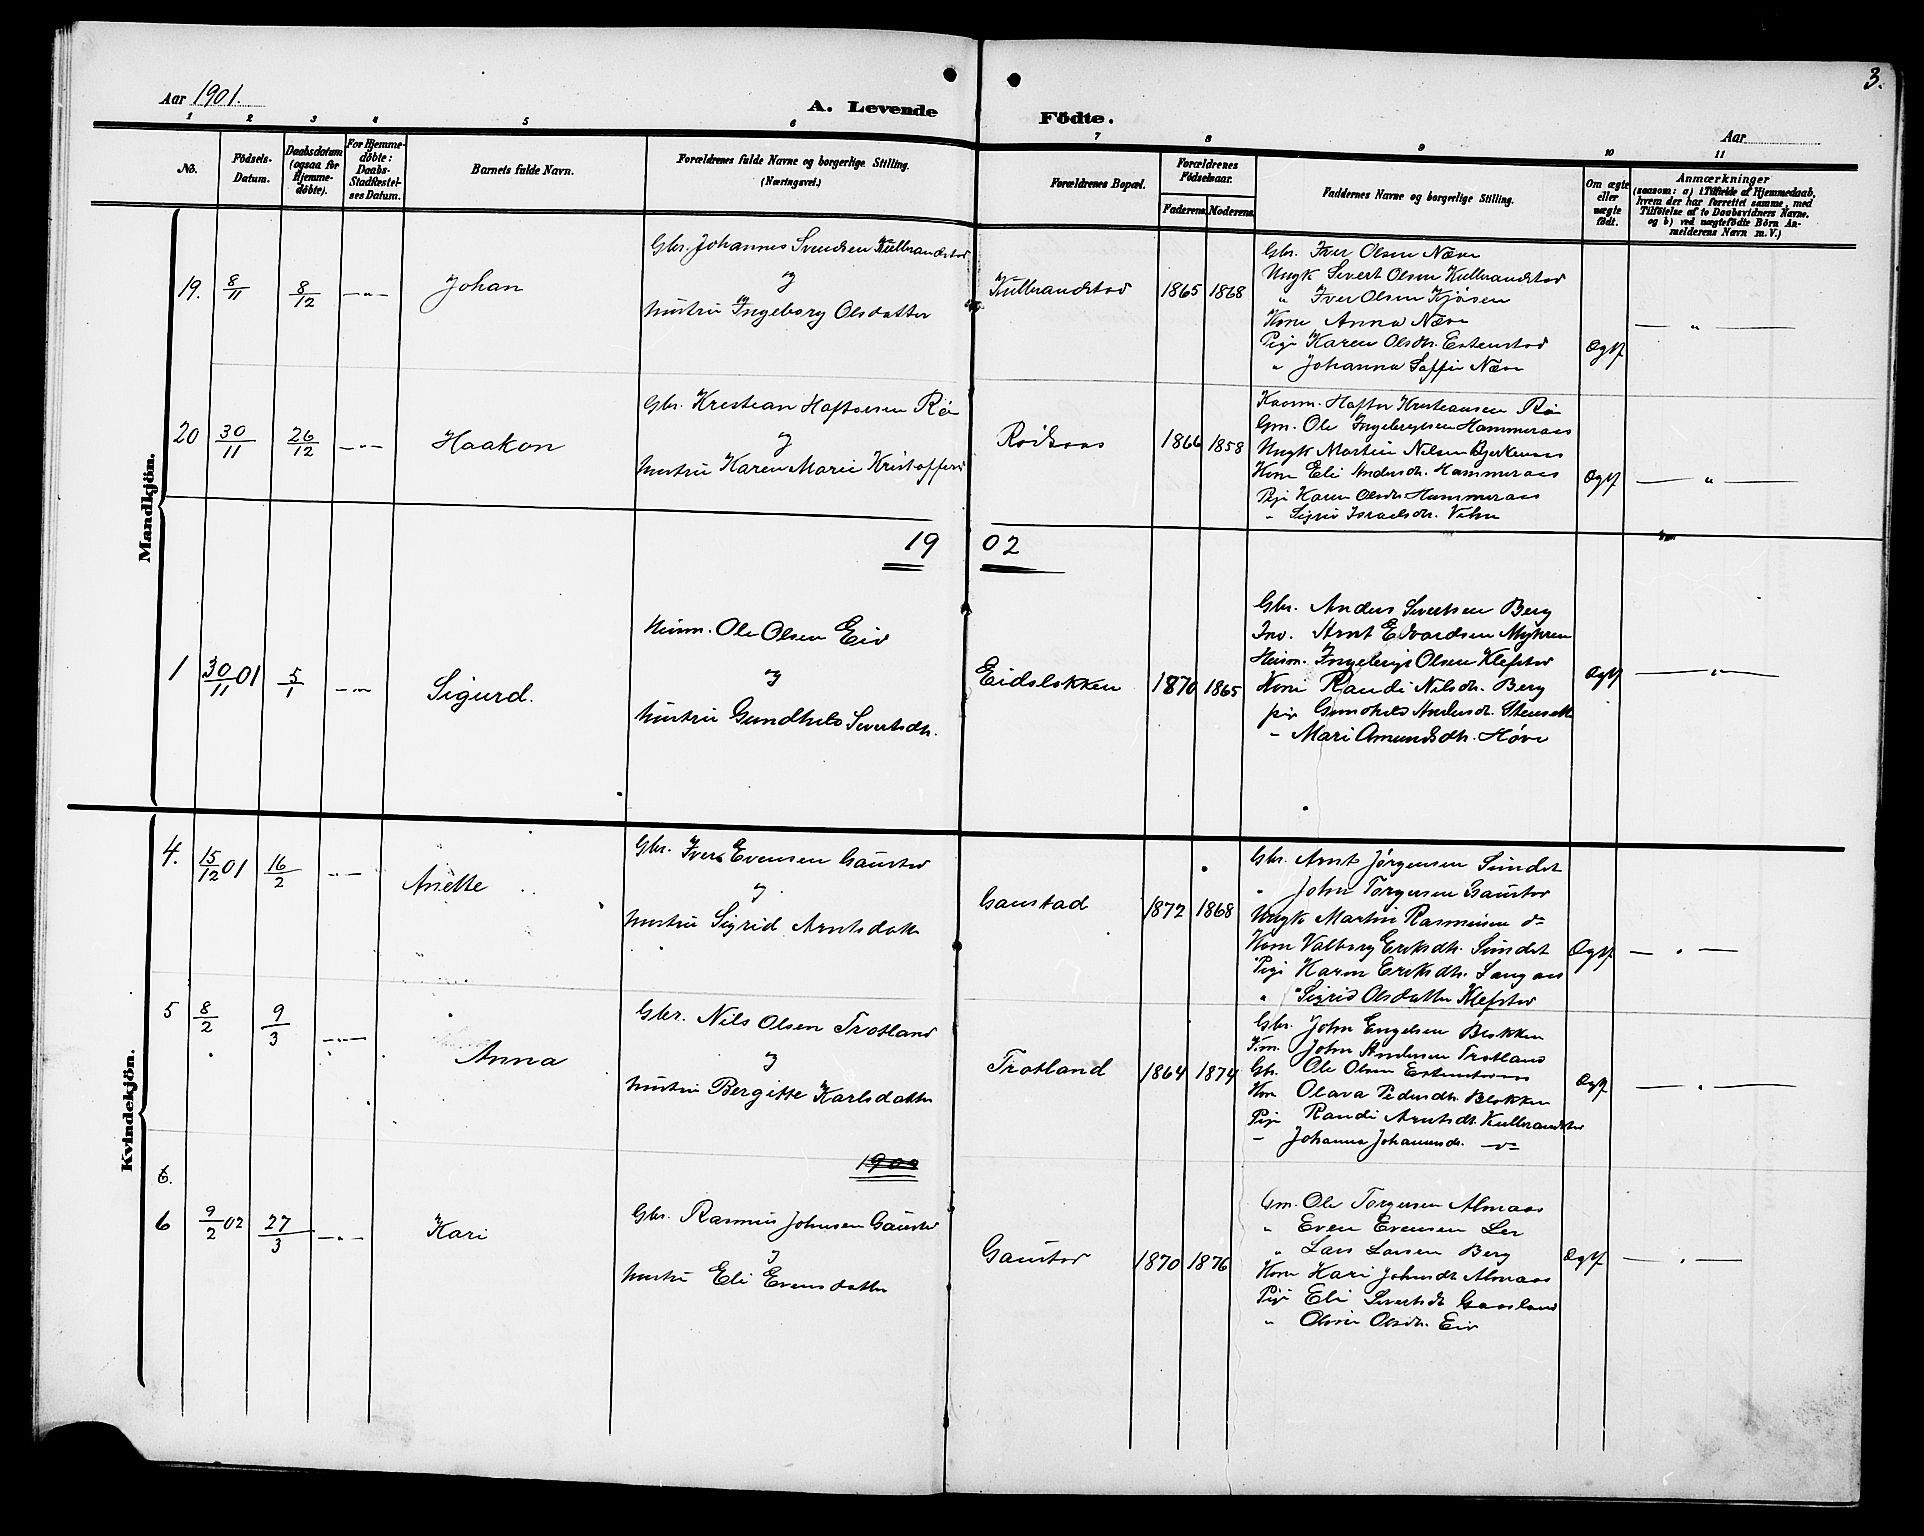 3.
Aar 1901.
A. Levende Fødte.
Aar
1 2 3 4 5 6 7 8 9 10 11
No.
Fødsels-Datum.
Daabsdatum (ogsaa for Hjemmedøbte).
For Hjemmedøbte: Daabs-Stadfæstelses Datum.
Barnets fulde Navn.
Forældrenes fulde Navne og borgerlige Stilling.
(Næringsvei.)
Forældrenes Bopæl.
Forældrenes Fødselsaar.
Faderens. Moderens.
Faddernes Navne og borgerlige Stilling.
Om ægte eller uægte født.
Anmærkninger
(saasom: a) i Tilfælde af Hjemmedaab,
hvem der har forrettet samme, med
Tilføielse af to Daabsvidners Navne,
og b) ved uægtefødte Børn Anmelderens Navn m. V.)
Mandkjön.
19. 8/11 8/12 —„— Johan
Gbr. Johannes Svendsen Kulbrandstad
og
Hustru Ingeborg Olsdatter
Kulbrandstad 1865 1868
Gbr. Iver Olsen Næve
Ungk Sivert Olsen Kulbrandstad
„ Iver Olsen Kjøsen
Kone Anna Næve
Pige Karen Olsdtr. Estenstad
„ Johanna Soffie Næve
Ægtf. — „ —
20 30/11 26/12 —„— Haakon
Gbr. Kristian Haftorsen Rø
og
Hustru Karen Marie Kristoffersd
1866 1858
Haftor Kristiansen Rø
Gm. Ole Ingebrigtsen Hammeraas
Ungk Martin Nilsen Bjerkenaas
Kone Eli Andersdtr. Hammeraas
Pige Karen Olsdtr Hammeraas
„ Sigrid Israelsdtr.
Ægtf — „ —
1902
1 30/11 01 5/1 —„— Sigurd.
Husm. Ole Olsen Eid
og
Hustru Gundhild Sivertsdtr.
Eidsløkken 1870 1865
Gbr. Anders Sivertsen Berg
Ind. Arnt Edvardsen Myhren
Husm. Ingebrigt Olsen Klefstad
Kone Randi Nilsdtr. Berg
pige Gundhild Andersdtr.
„ Mari Amundsdtr. Høve
Ægtf — „ —
Kvindekjön.
4. 15/12 01 16/2 —„— Anette
Gbr. Iver Evensen Gaustad
og
Hustru Sigrid Arntsdatter
Gaustad 1872 1868
Gbr. Arnt Jørgensen Sundet
„ John Torgersen Gaustad
Ungk Martin Rasmusen do
Kone Valborg Eriksdtr. Sundet
Pige Karen Eriksdtr. Langaas
„ Sigrid Olsdatter Klefstad
Ægtf. — „ —
5 8/2 9/3 —„— Anna
Gbr. Nils Olsen Trotland
og
Hustru Bergitte Karlsdatter
Trotland 1864 1874
Gbr. John Engelsen Blokken
John Andersen Trotland
Gbr. Ole Olsen
Kone Olava Pedersdtr. Blokken
Pige Randi Arntsdtr Kulbrandstad
„ Johanna Johannesdtr. —do—
Ægtf — „ —
6.
1902
6 9/2 02 27/3 —„— Kari
Gbr. Rasmus Johnsen Gaustad
og
Hustru Eli Evensdatter
Gaustad 1870 1876
Gm. Ole Torgersen Almaas
„ Even Evensen Ler
„ Lars Larsen Berg
Kone Kari Johnsdtr Almaas
Pige Eli Sivertsdtr Gaasland
„ Olsdtr. Eid
Ægtf — „ —